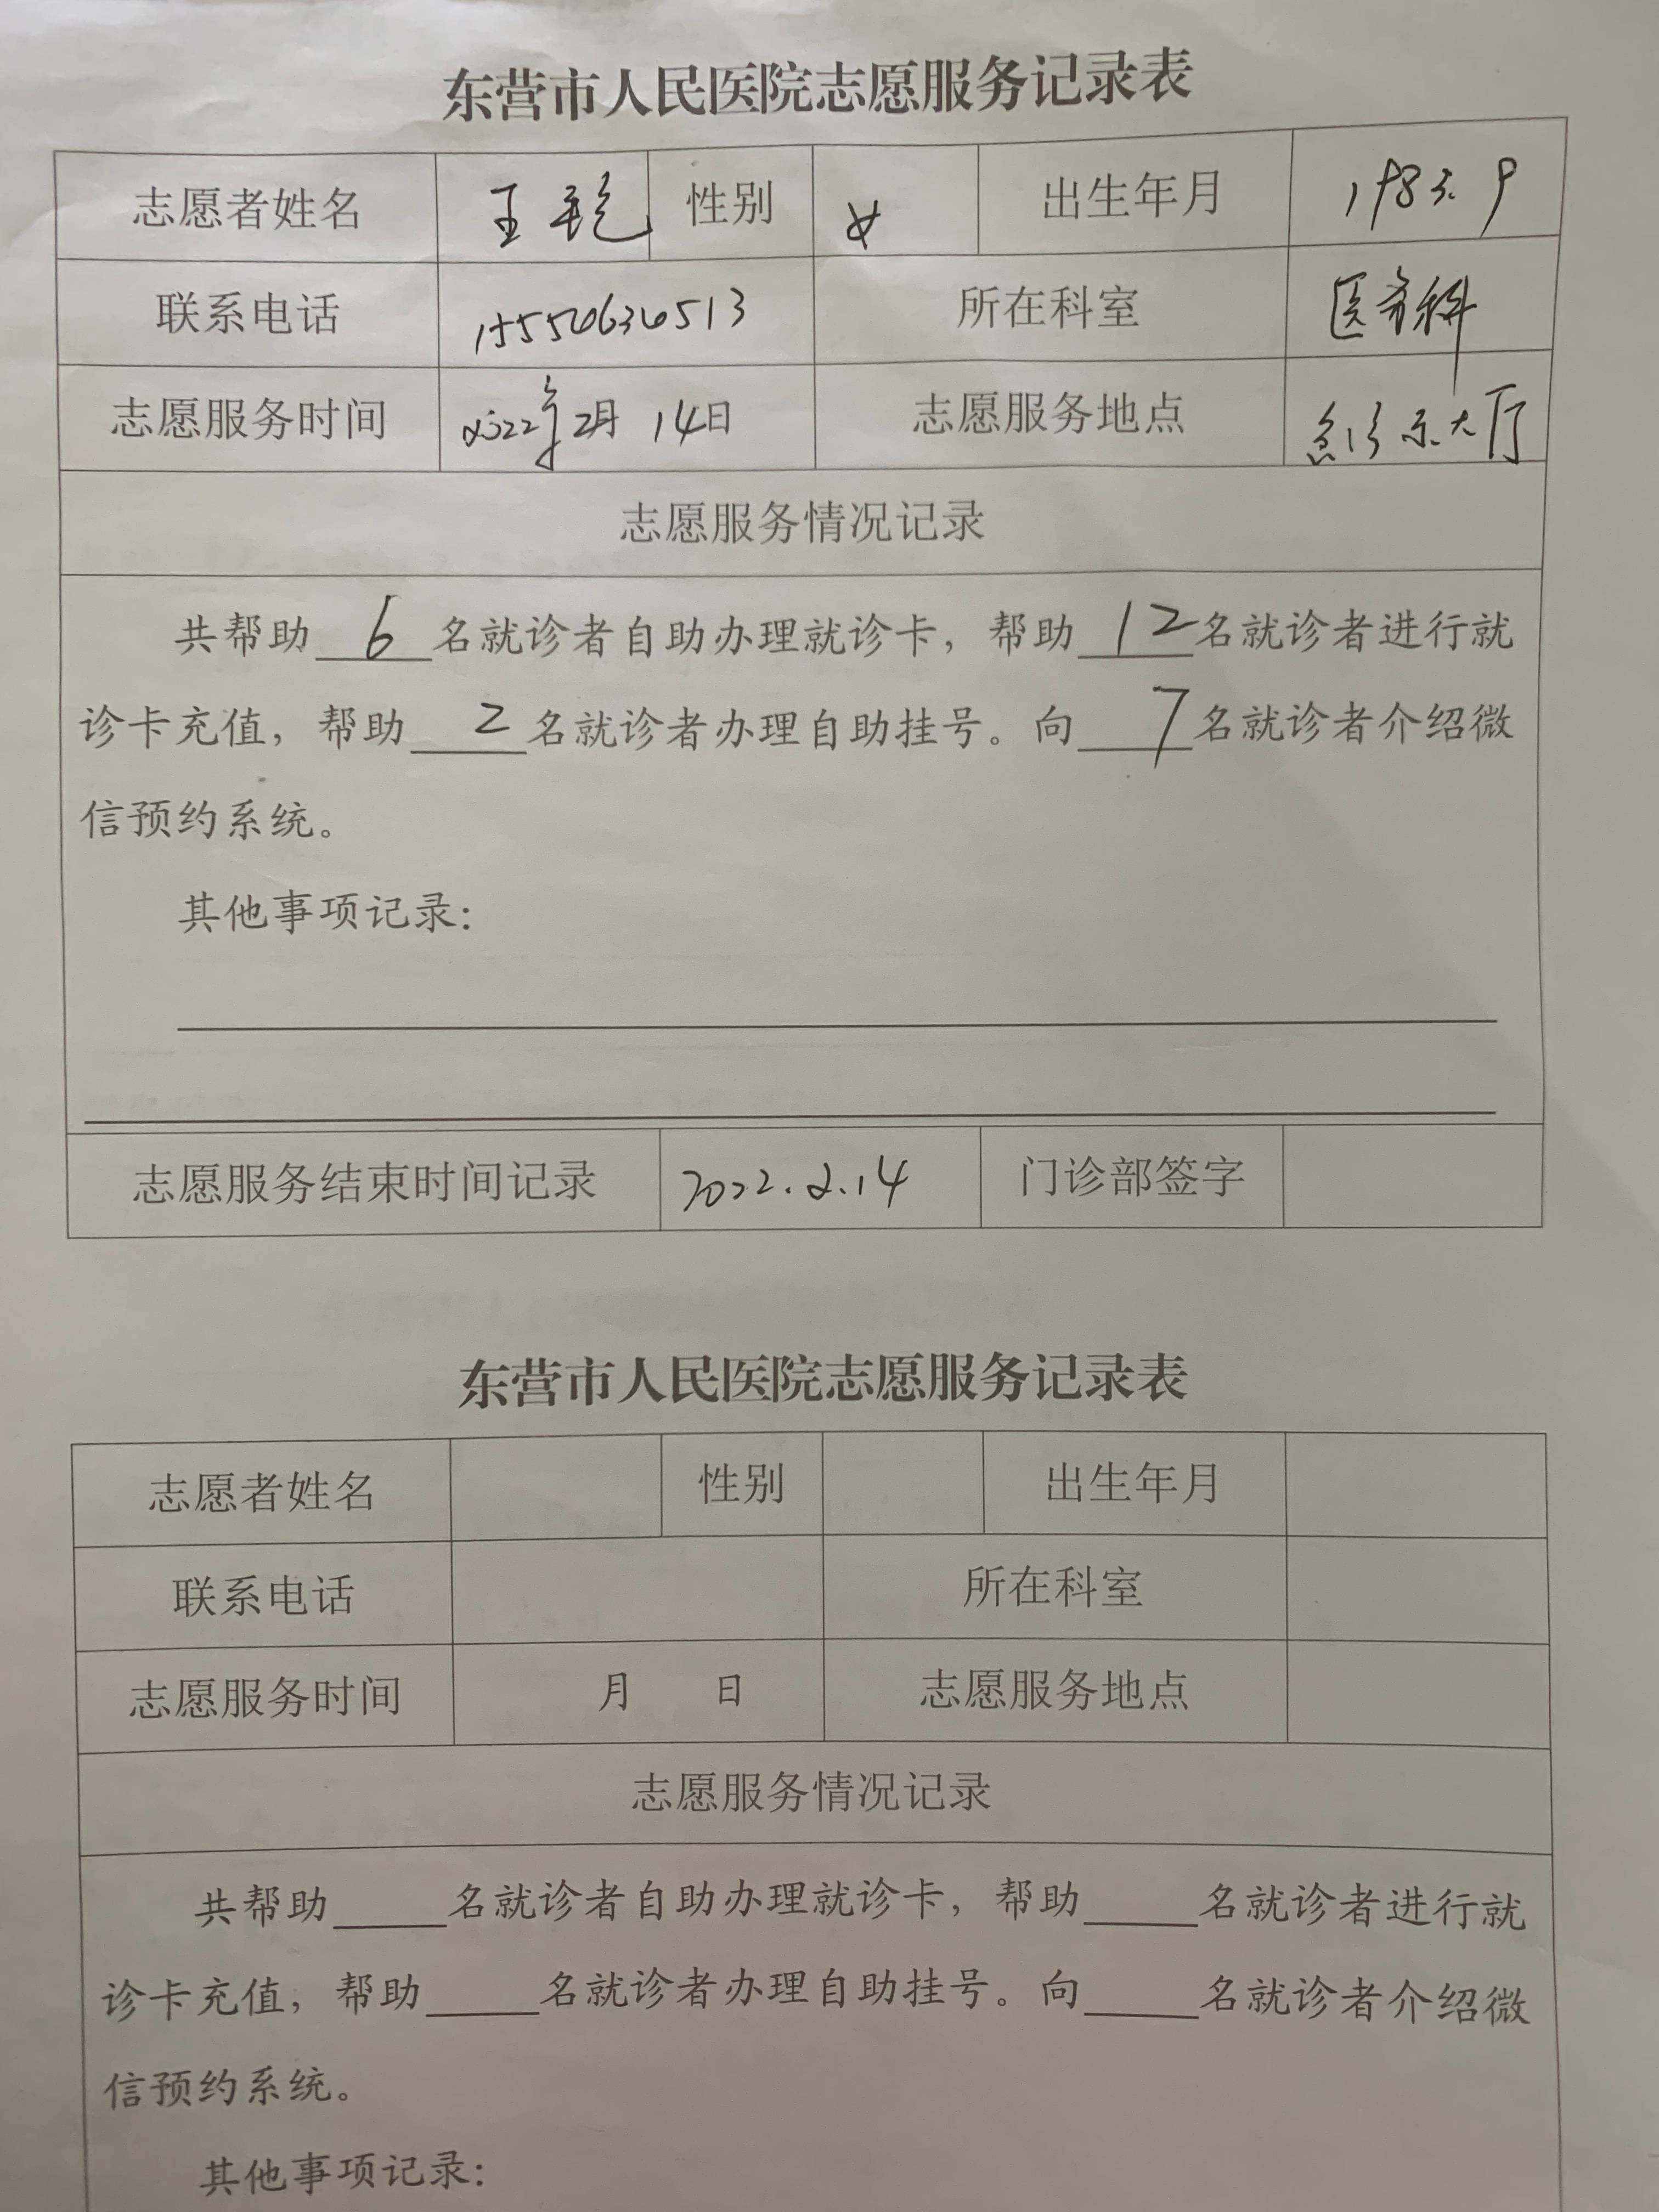 东营市人民医院志愿服务记录表
志愿者姓名 王艳 性别 女 出生年月 1983.9
联系电话 15550630513 所在科室 医务科
志愿服务时间 2022年2月14日 志愿服务地点 大厅
志愿服务情况记录
共帮助6名就诊者自助办理就诊卡，帮助12名就诊者进行就
诊卡充值，帮助2名就诊者办理自助挂号。向7名就诊者介绍微
信预约系统。
其他事项记录：
志愿服务结束时间记录 2022.2.14 门诊部签字
东营市人民医院志愿服务记录表
志愿者姓名 性别 出生年月
联系电话 所在科室
志愿服务时间 月 日 志愿服务地点
志愿服务情况记录
共帮助____名就诊者自助办理就诊卡，帮助____名就诊者进行就
诊卡充值，帮助____名就诊者办理自助挂号。向____名就诊者介绍微
信预约系统。
其他事项记录：